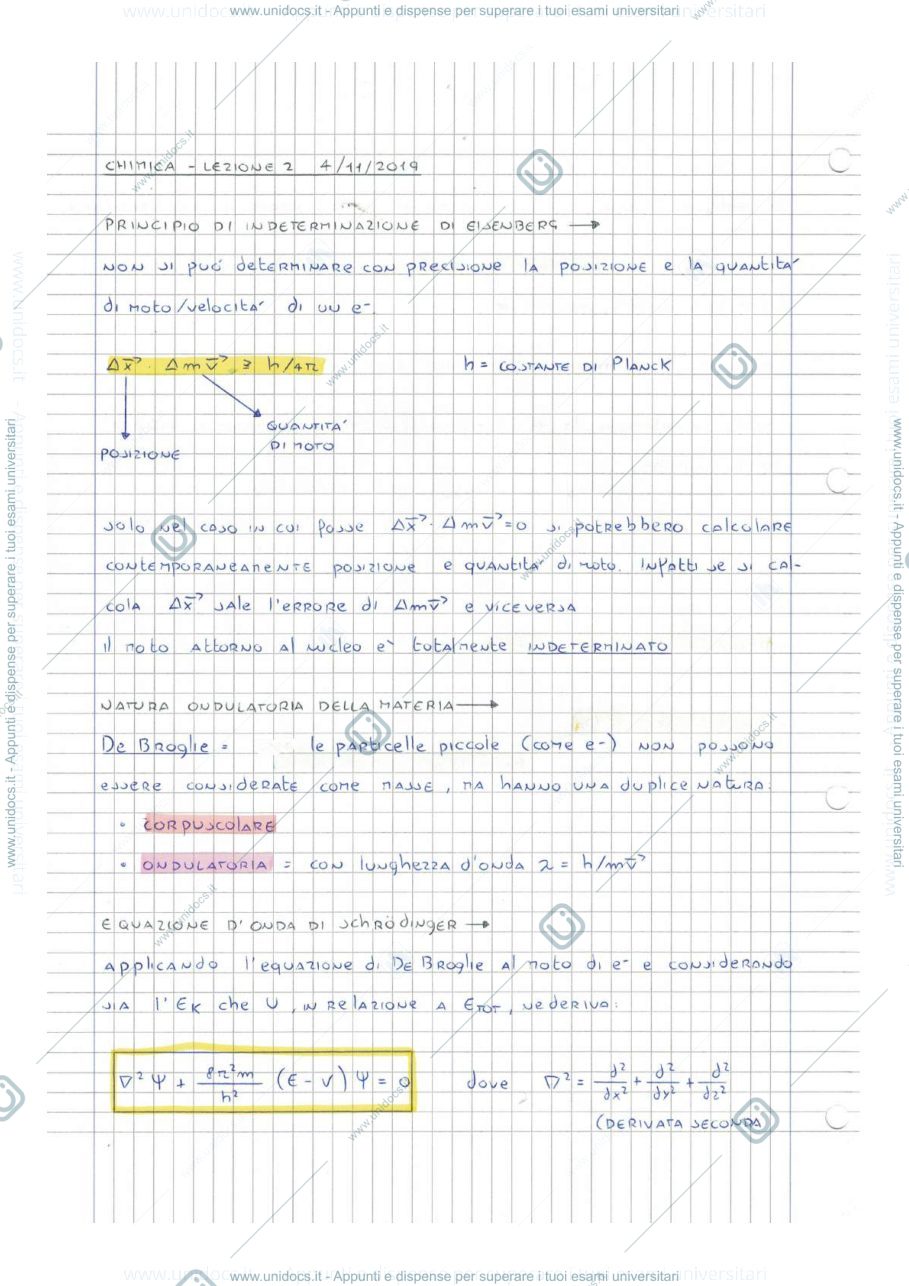 www.unidocs.it - Appunti e dispense per superare i tuoi esami universitari
CHIMICA - LEZIONE 2 4/11/2019
PRINCIPIO DI INDETERMINAZIONE DI EISENBERG →
NON SI PUÓ DETERMINARE CON PRECISIONE LA POSIZIONE E LA QUANTITA'
di MOTO/velocITA' di UN e-.
Δx⃗ · Δmv⃗ ≥ h/4π h = COSTANTE DI PLANCK
QUANTITA'
DI MOTO
POSIZIONE
solo nel caso in cui fosse Δx⃗ · Δmv⃗ = 0 si potrebbero calcolare
contemporaneamente posizione e quantita' di moto. Infatti se si cal-
cola Δx⃗ sale l'errore di Δmv⃗ e viceversa
il moto attorno al nucleo e' totalmente INDETERMINATO
NATURA ONDULATORIA DELLA MATERIA →
De Broglie = le particelle piccole (come e-) non possono
essere considerate come masse, ma hanno una duplice natura:
• CORPUSCOLARE
• ONDULATORIA = con lunghezza d'onda λ = h/mv⃗
EQUAZIONE D'ONDA DI SCHRÖDINGER →
applicando l'equazione di De Broglie al moto di e- e considerando
sia l'EK che U, in relazione a ETOT, ne deriva:
∇²Ψ + 8π²m/h² (E - V)Ψ = 0 dove ∇² = d²/dx² + d²/dy² + d²/dz²
(DERIVATA SECONDA
www.unidocs.it - Appunti e dispense per superare i tuoi esami universitari